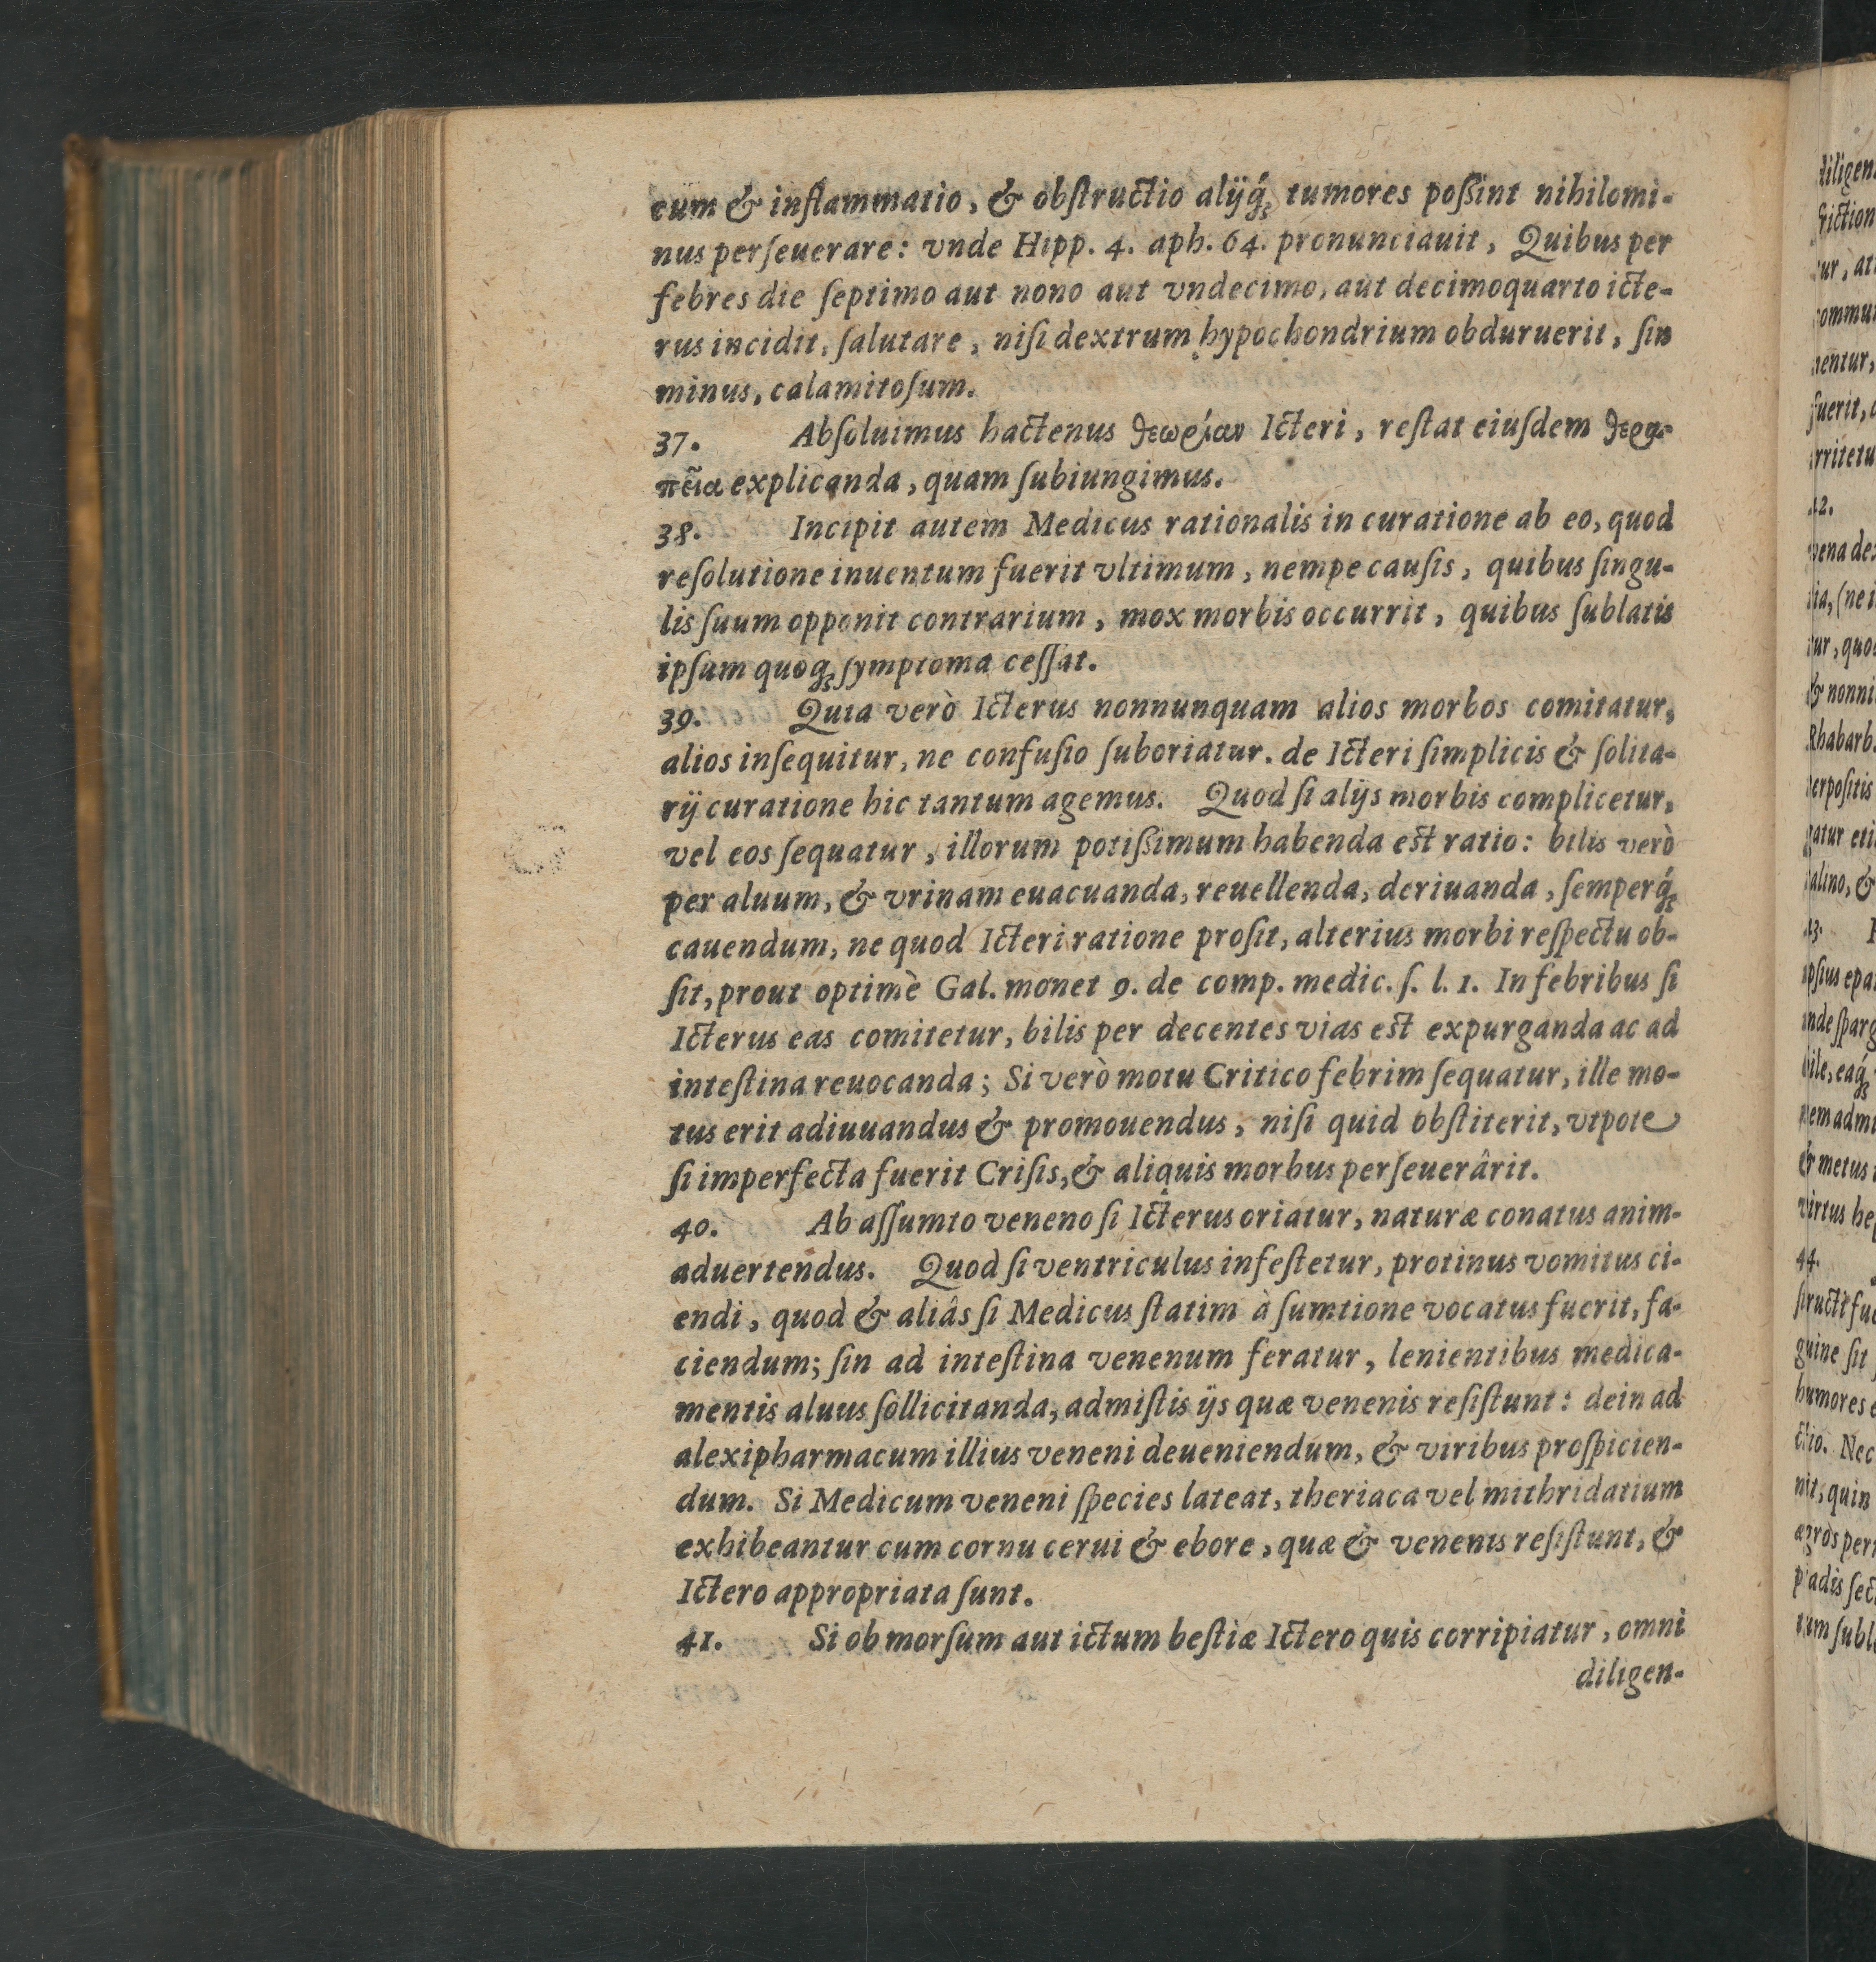 cum & inflammatio, & obſtructio alijq́ꝫ tumores poßint nihilomi-
nus perſeuerare: vnde Hipp. 4. aph. 64. pronunciauit, Quibus per
febres die ſeptimo aut nono aut vndecimo, aut decimoquarto icte-
rus incidit, ſalutare, niſi dextrum hypochondrium obduruerit, ſin
minus, calamitoſum.
37. Abſoluimus hactenus θεωρίαν Icteri, reſtat eiuſdem θερα-
πεῖα explicanda, quam ſubiungimus.
38. Incipit autem Medicus rationalis in curatione ab eo, quod
reſolutione inuentum fuerit vltimum, nempe cauſis, quibus ſingu-
lis ſuum opponit contrarium, mox morbis occurrit, quibus ſublatis
ipſum quoqꝫ ſymptoma ceſſat.
39. Quia verò Icterus nonnunquam alios morbos comitatur,
alios inſequitur, ne confuſio ſuboriatur. de Icteri ſimplicis & ſolita-
rij curatione hic tantum agemus. Quod ſi alijs morbis complicetur,
vel eos ſequatur, illorum potißimum habenda eſt ratio: bilis verò
per aluum, & vrinam euacuanda, reuellenda, deriuanda, ſemperq́ꝫ
cauendum, ne quod Icteri ratione proſit, alterius morbi reſpectu ob-
ſit, prout optimè Gal. monet 9. de comp. medic. ſ. l. 1. In febribus ſi
Icterus eas comitetur, bilis per decentes vias eſt expurganda ac ad
inteſtina reuocanda; Si verò motu Critico febrim ſequatur, ille mo-
tus erit adiuuandus & promouendus, niſi quid obſtiterit, vtpote
ſi imperfecta fuerit Criſis, & aliquis morbus perſeuerârit.
40. Ab aſſumto veneno ſi Icterus oriatur, naturæ conatus anim-
aduertendus. Quod ſi ventriculus infeſtetur, protinus vomitus ci-
endi, quod & aliâs ſi Medicus ſtatim à ſumtione vocatus fuerit, fa-
ciendum; ſin ad inteſtina venenum feratur, lenientibus medica-
mentis aluus ſollicitanda, admiſtis ijs quæ venenis reſiſtunt: dein ad
alexipharmacum illius veneni deueniendum, & viribus proſpicien-
dum. Si Medicum veneni ſpecies lateat, theriaca vel mithridatium
exhibeantur cum cornu cerui & ebore, quæ & venenis reſiſtunt, &
Ictero appropriata ſunt.
41. Si ob morſum aut ictum beſtiæ Ictero quis corripiatur, omni
diligen-